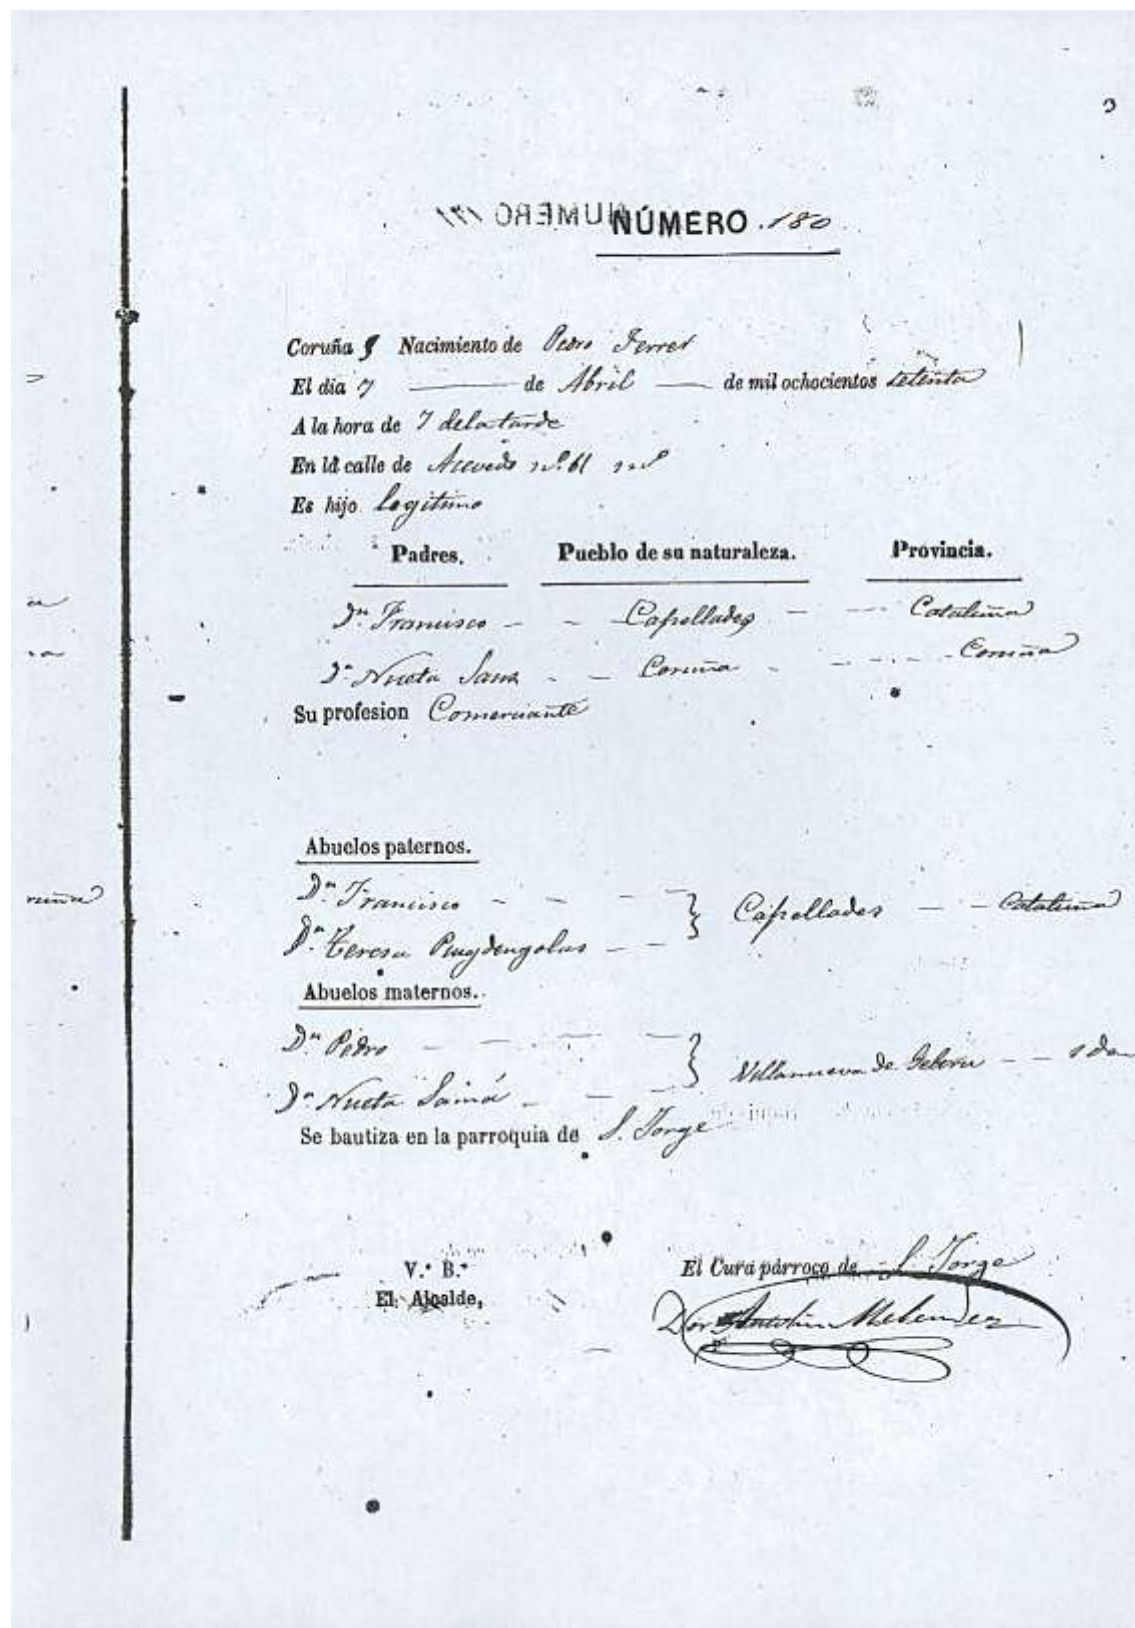 NÚMERO 180
Coruña Nacimiento de Pedro Ferrer
El dia 7 de Abril de mil ochocientos setenta
A la hora de 7 de la tarde
En la calle de Acevedo nº. 61
Es hijo legitimo
Padres. Pueblo de su naturaleza. Provincia.
Dn. Francisco Capellades Cataluña
Dª Coruña Coruña
Su profesion Comerciante
Abuelos paternos.
Dn. Francisco
Capellades Cataluña
Dª. Teresa Puigdengolas
Abuelos maternos.
Dn Pedro
Villanueva de
Dª
Se bautiza en la parroquia de S. Jorge
V.º B.º
El Alcalde,
El Cura párroco de S. Jorge
Dor Antolin Melendez